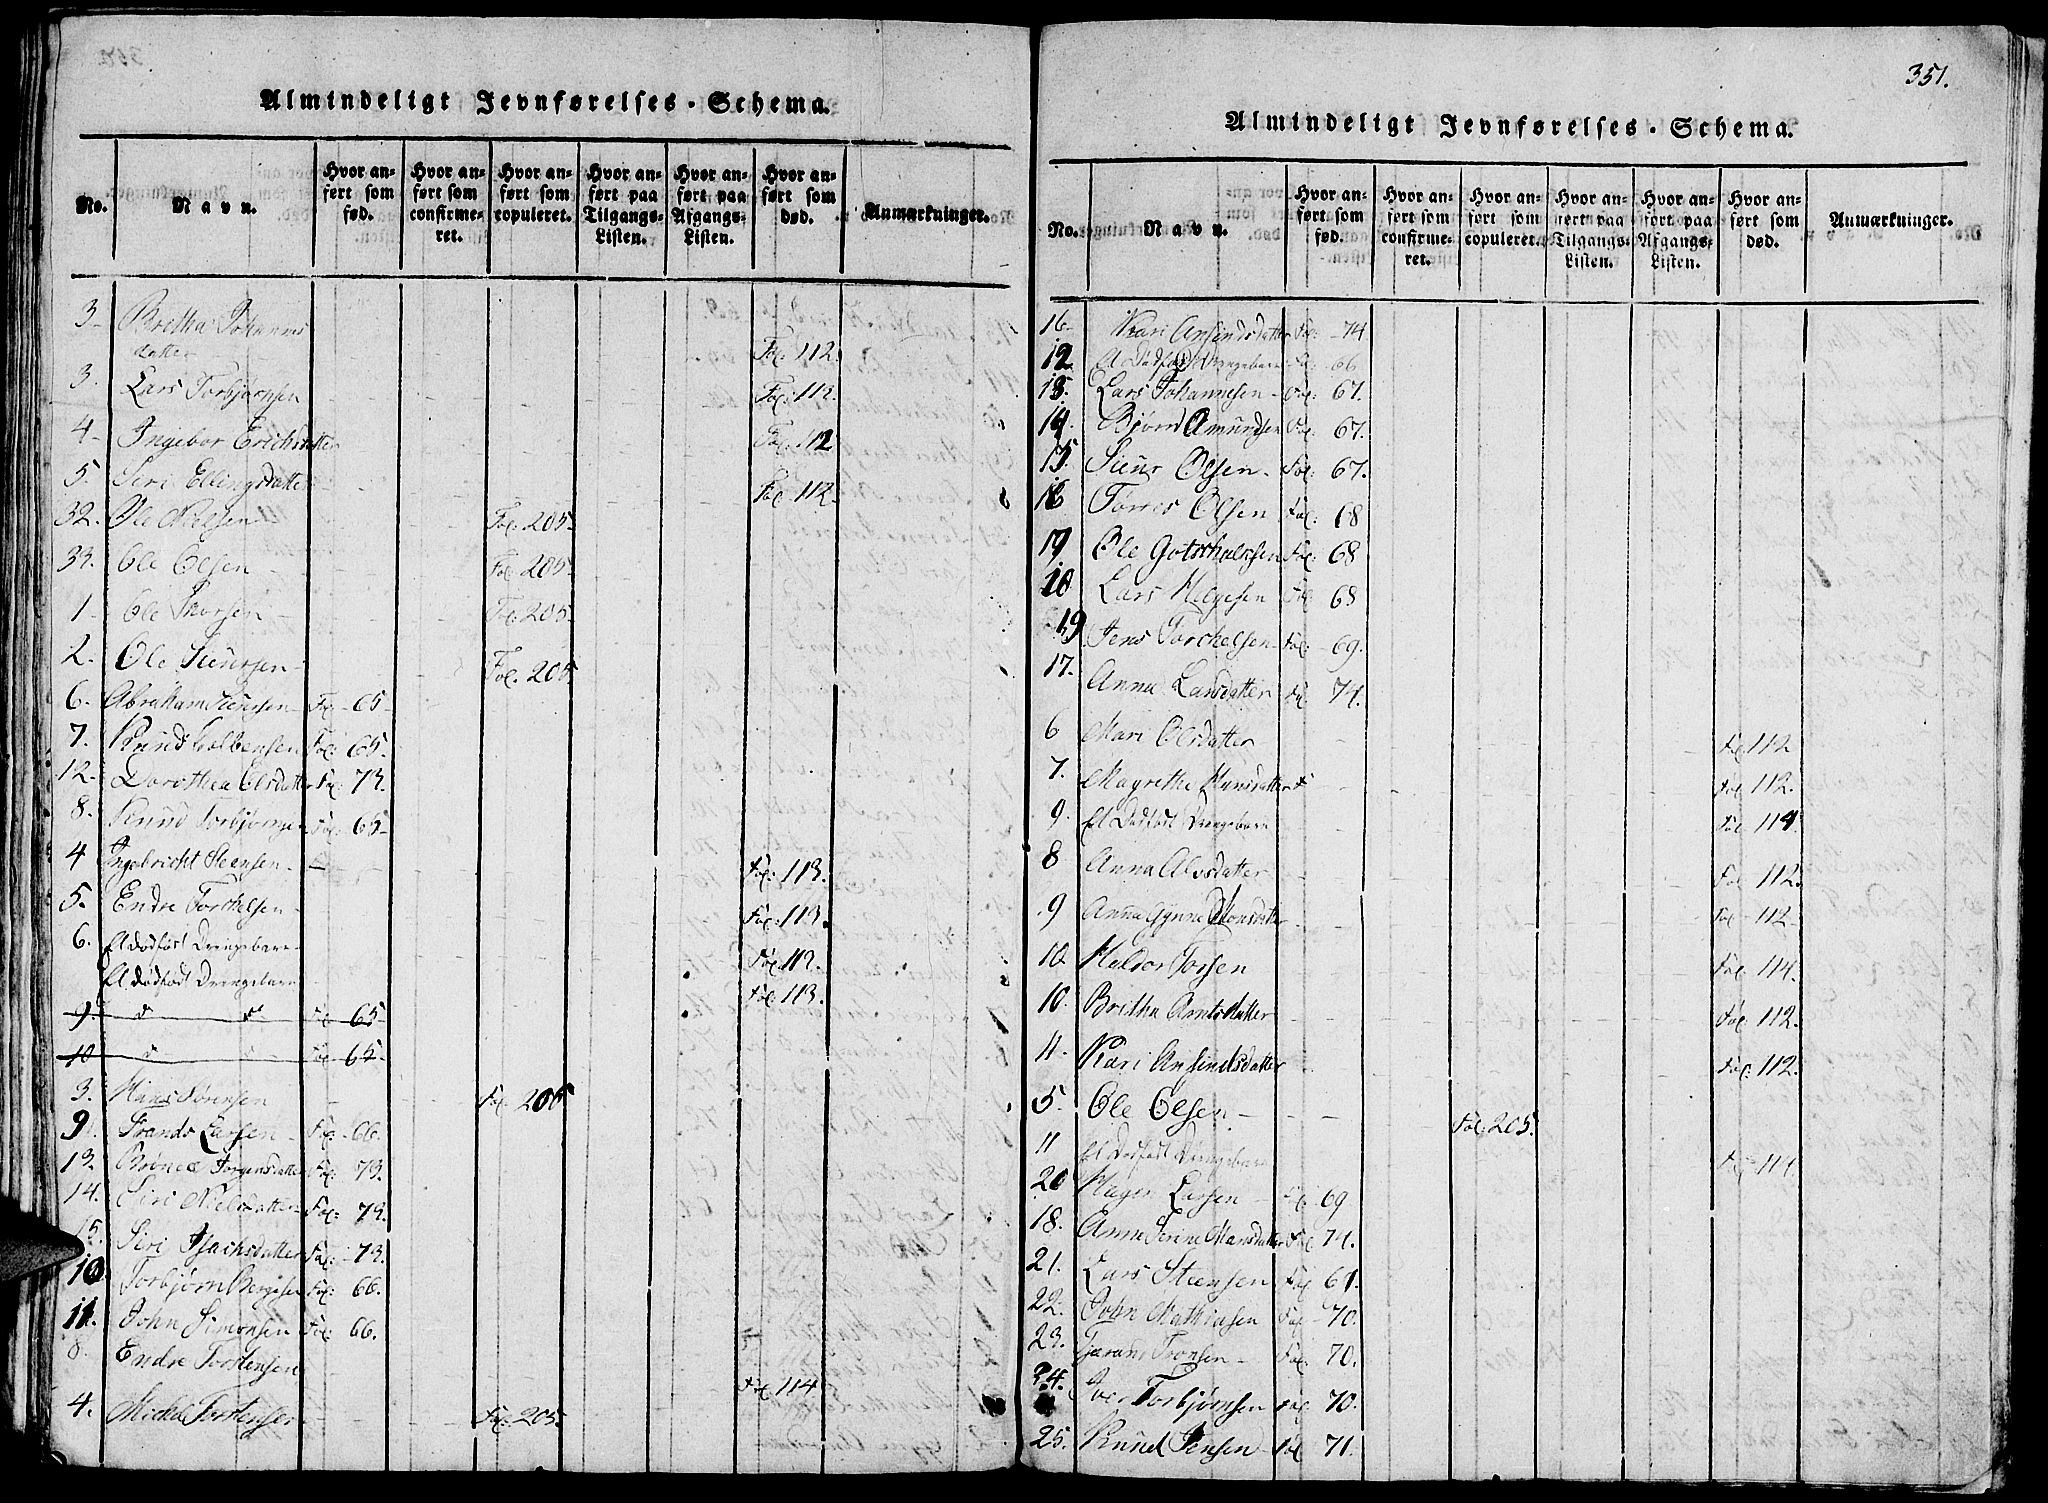 Almindeligt Jevnførelses-Schema.
No.
Navn.
Hvor an-
ført som
fød.
Hvor an-
ført som
confirme-
ret.
Hvor an-
ført som
copuleret.
Hvor an-
ført paa
Tilgangs-
Listen.
Hvor an-
ført paa
Afgangs-
Listen.
Hvor an-
ført som
død.
Anmærkninger.
3 Bretha Johannes
datter Fol. 112.
3. Lars Torbjørnsen Fol. 113.
4 Ingebor Erichsdatter Fol. 112
5. Siri Ellingsdatter Fol. 112
32. Ole Nielsen Fol. 205
33. Ole Olsen Fol. 205
1 Ole Thorsen Fol. 205
2. Ole Siursen Fol. 205
6. Abraham Siursen Fol. 65
7. Knud Colbensen Fol. 65.
12. Dorothea Olsdatter Fol. 73.
8. Knud Torbjørnsen Fol. 65
4 Ingebricht Steensen Fol. 113.
5. Endre Torchelsen Fol. 113.
6. Et dødfødt Drengebarn Fol. 113.
Et dødfødt Drengebarn Fol. 113.
9. d d Fol. 65
10 d d Fol. 65.
3. Hans Sørensen Fol. 205
9. Trands Larsen Fol. 66.
13. Brønla Jorgensdatter Fol. 73.
14. Siri Nielsdatter Fol. 73.
15. Siri Isachsdatter Fol. 73
10 Torbjørn Bergesen Fol. 66.
11. John Simonsen Fol. 66.
8. Endre Torstensen Fol. 114
4. Michel Torstensen Fol. 205.
351.
Almindeligt Jevnførelses-Schema.
No.
Navn.
Hvor an-
ført som
fød.
Hvor an-
ført som
confirme-
ret.
Hvor an-
ført som
copuleret.
Hvor an-
ført paa
Tilgangs-
Listen.
Hvor an-
ført paa
Afgangs-
Listen.
Hvor an-
ført som
død.
Anmærkninger.
16 Kari Ansindsdatter Fol. 74
12 Et Dødfødt Drengebarn Fol. 66
13. Lars Johannesen Fol. 67.
14. Bjørn Amundsen Fol. 67.
15. Siur Olsen Fol. 67.
16 Torres Olsen Fol. 68
17 Ole Gotschalksen Fol. 68
18 Lars Helgesen Fol. 68
19 Jens Torchelsen Fol. 69.
17. Anna Larsdatter Fol. 74.
6 Mari Olsdatter Fol. 112
7. Magretha Hansdatter Fol. 112.
9. Et Dødfødt Drengebarn Fol. 114.
8 Anna Olsdatter Fol. 112.
9 Anna Gynna Monsdatter Fol. 112
10 Haldor Torsen Fol. 114.
10. Britha Arntsdatter Fol. 112.
11. Kari Ansindsdatter Fol. 112.
5. Ole Olsen Fol. 205.
11 Et Dødfødt Drengebarn Fol. 114
20 Hager Larsen Fol. 69
18. Anne Serine Hansdatter Fol. 74.
21. Lars Steensen Fol. 69.
22. John Mathiasen Fol. 70.
23. Tronsen Fol. 70.
24. Iver Torbjørnsen Fol. 70.
25. Knud Jensen Fol. 71.